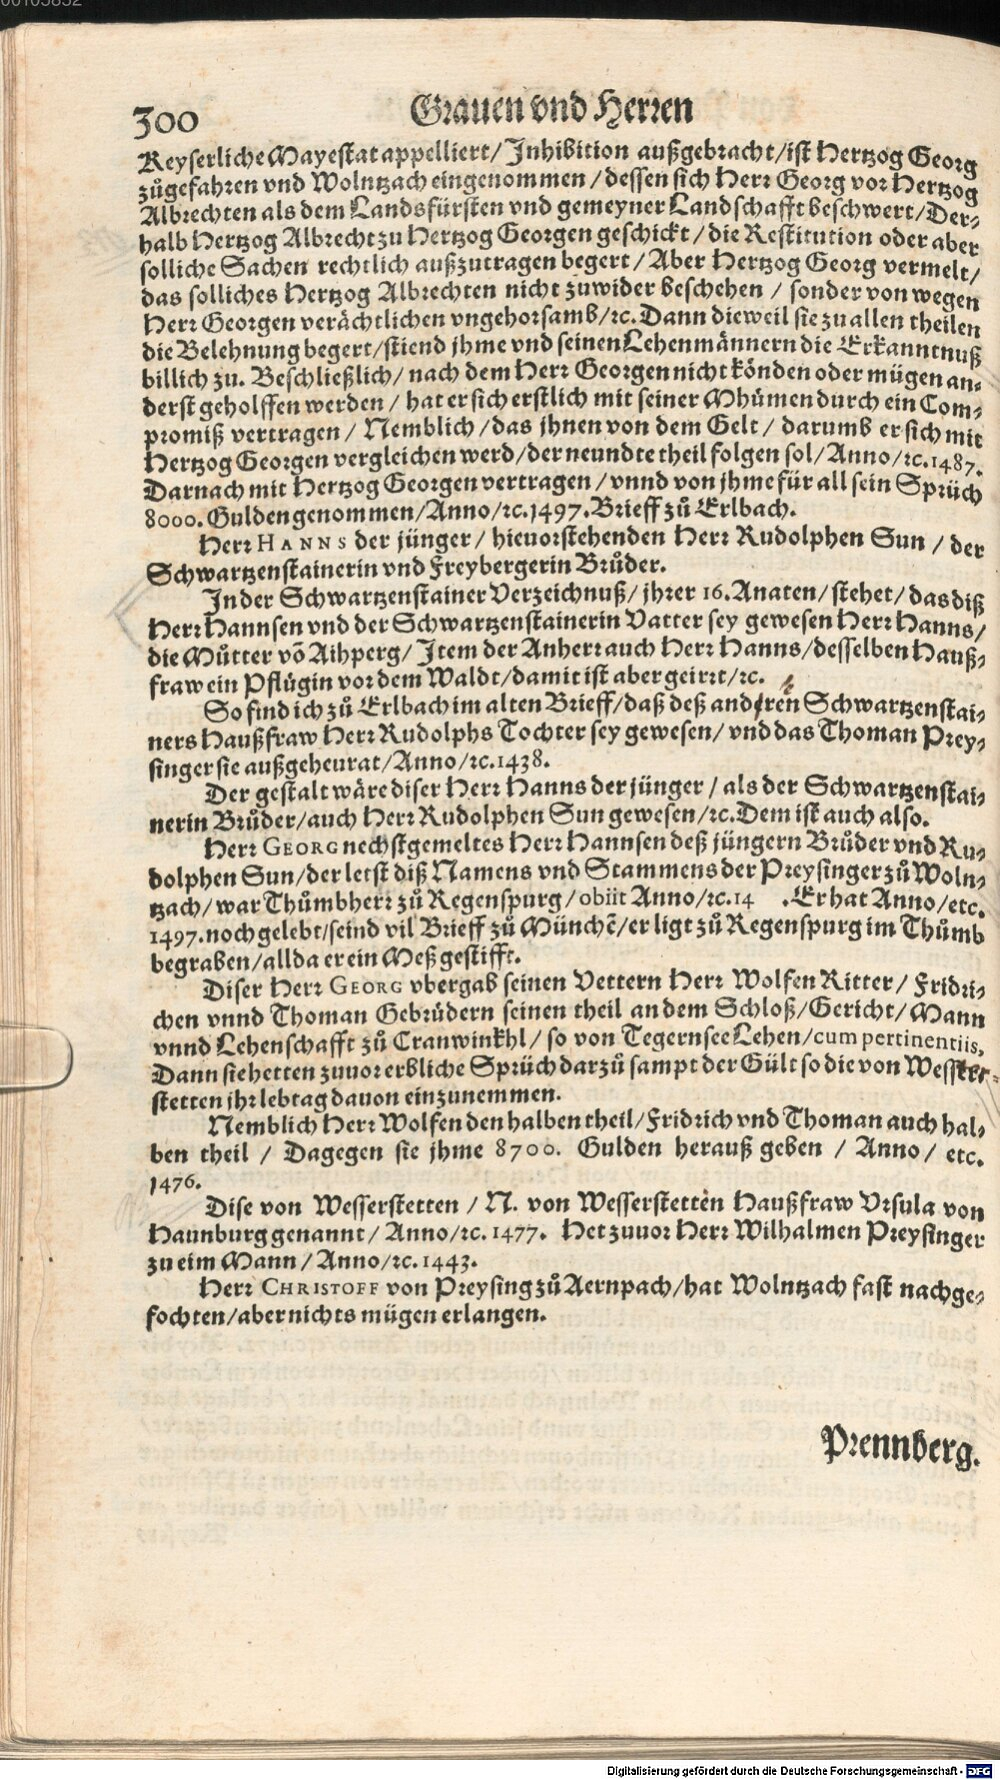 300
Grauen vnd Herren
Keyserliche Mayestat appelliert/Inhibition außgebracht/ist Hertzog Georg
zůgefahren vnd Wolntzach eingenommen/dessen sich Herr Georg vor Hertzog
Albrechten als dem Landsfürsten vnd gemeyner Landschafft beschwert/Der-
halb Hertzog Albrecht zu Hertzog Georgen geschickt/die Restitution oder aber
solliche Sachen rechtlich außzutragen begert/Aber Hertzog Georg vermelt/
das solliches Hertzog Albrechten nicht zuwider beschehen/sonder von wegen
Herr Georgen verächtlichen vngehorsamb/ꝛc. Dann dieweil sie zu allen theilen
die Belehnung begert/stiend jhme vnd seinen Lehenmännern die Erkanntnuß
billich zu. Beschließlich/nach dem Herr Georgen nicht könden oder mügen an-
derst geholffen werden/hat er sich erstlich mit seiner Mhůmen durch ein Com-
promiß vertragen/Nemblich/das jhnen von dem Gelt/darumb er sich mit
Hertzog Georgen vergleichen werd/der neundte theil folgen sol/Anno/ꝛc. 1487.
Darnach mit Hertzog Georgen vertragen/vnnd von jhme für all sein Sprüch
8000. Gulden genommen/Anno/ꝛc. 1497. Brieff zů Erlbach.
Herr HANNS der jünger/hieuorstehenden Herr Rudolphen Sun/der
Schwartzenstainerin vnd Freybergerin Brůder.
In der Schwartzenstainer Verzeichnuß/jhrer 16. Anaten/stehet/das diß
Herr Hannsen vnd der Schwartzenstainerin Vatter sey gewesen Herr Hanns/
die Můtter võ Aihperg/Item der Anherr auch Herr Hanns/desselben Hauß-
fraw ein Pflügin vor dem Waldt/damit ist aber geirrt/ꝛc.
So find ich zů Erlbach im alten Brieff/daß deß anderen Schwartzenstai-
ners Haußfraw Herr Rudolphs Tochter sey gewesen/vnd das Thoman Prey-
singer sie außgeheurat/Anno/ꝛc. 1438.
Der gestalt wäre diser Herr Hanns der jünger/als der Schwartzenstai-
nerin Brůder/auch Herr Rudolphen Sun gewesen/ꝛc. Dem ist auch also.
Herr GEORG nechstgemeltes Herr Hannsen deß jüngern Brůder vnd Ru-
dolphen Sun/der letst diß Namens vnd Stammens der Preysinger zů Woln-
tzach/war Thůmbherr zů Regenspurg/obiit Anno/ꝛc. 14 . Er hat Anno/etc.
1497. noch gelebt/seind vil Brieff zů Münchẽ/er ligt zů Regenspurg im Thůmb
begraben/allda er ein Meß gestifft.
Diser Herr GEORG vbergab seinen Vettern Herr Wolfen Ritter/Fridri-
chen vnnd Thoman Gebrüdern seinen theil an dem Schloß/Gericht/Mann
vnnd Lehenschafft zů Cranwinkhl/so von Tegernsee Lehen/cum pertinentiis,
Dann sie hetten zuuor erbliche Sprüch darzů sampt der Gült so die von Wesser-
stetten jhr lebtag dauon einzunemmen.
Nemblich Herr Wolfen den halben theil/Fridrich vnd Thoman auch hal-
ben theil/Dagegen sie jhme 8700. Gulden herauß geben/Anno/etc.
1476.
Dise von Wesserstetten/N. von Wesserstetten Haußfraw Vrsula von
Haunburg genannt/Anno/ꝛc. 1477. Het zuuor Herr Wilhalmen Preysinger
zu eim Mann/Anno/ꝛc. 1443.
Herr CHRISTOFF von Preysing zů Aernpach/hat Wolntzach fast nachge-
fochten/aber nichts mügen erlangen.
Prennberg.
Digitalisierung gefördert durch die Deutsche Forschungsgemeinschaft - DFG